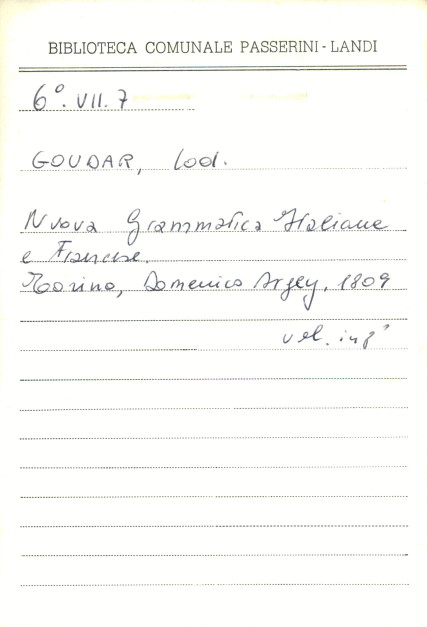 BIBLIOTECA COMUNALE PASSERINI - LANDI
6°. VII. 7
GOUDAR, Lod.
Nuova Grammatica Italiana
e Francese.
Torino, Domenico Argey, 1809
vol. in 8°